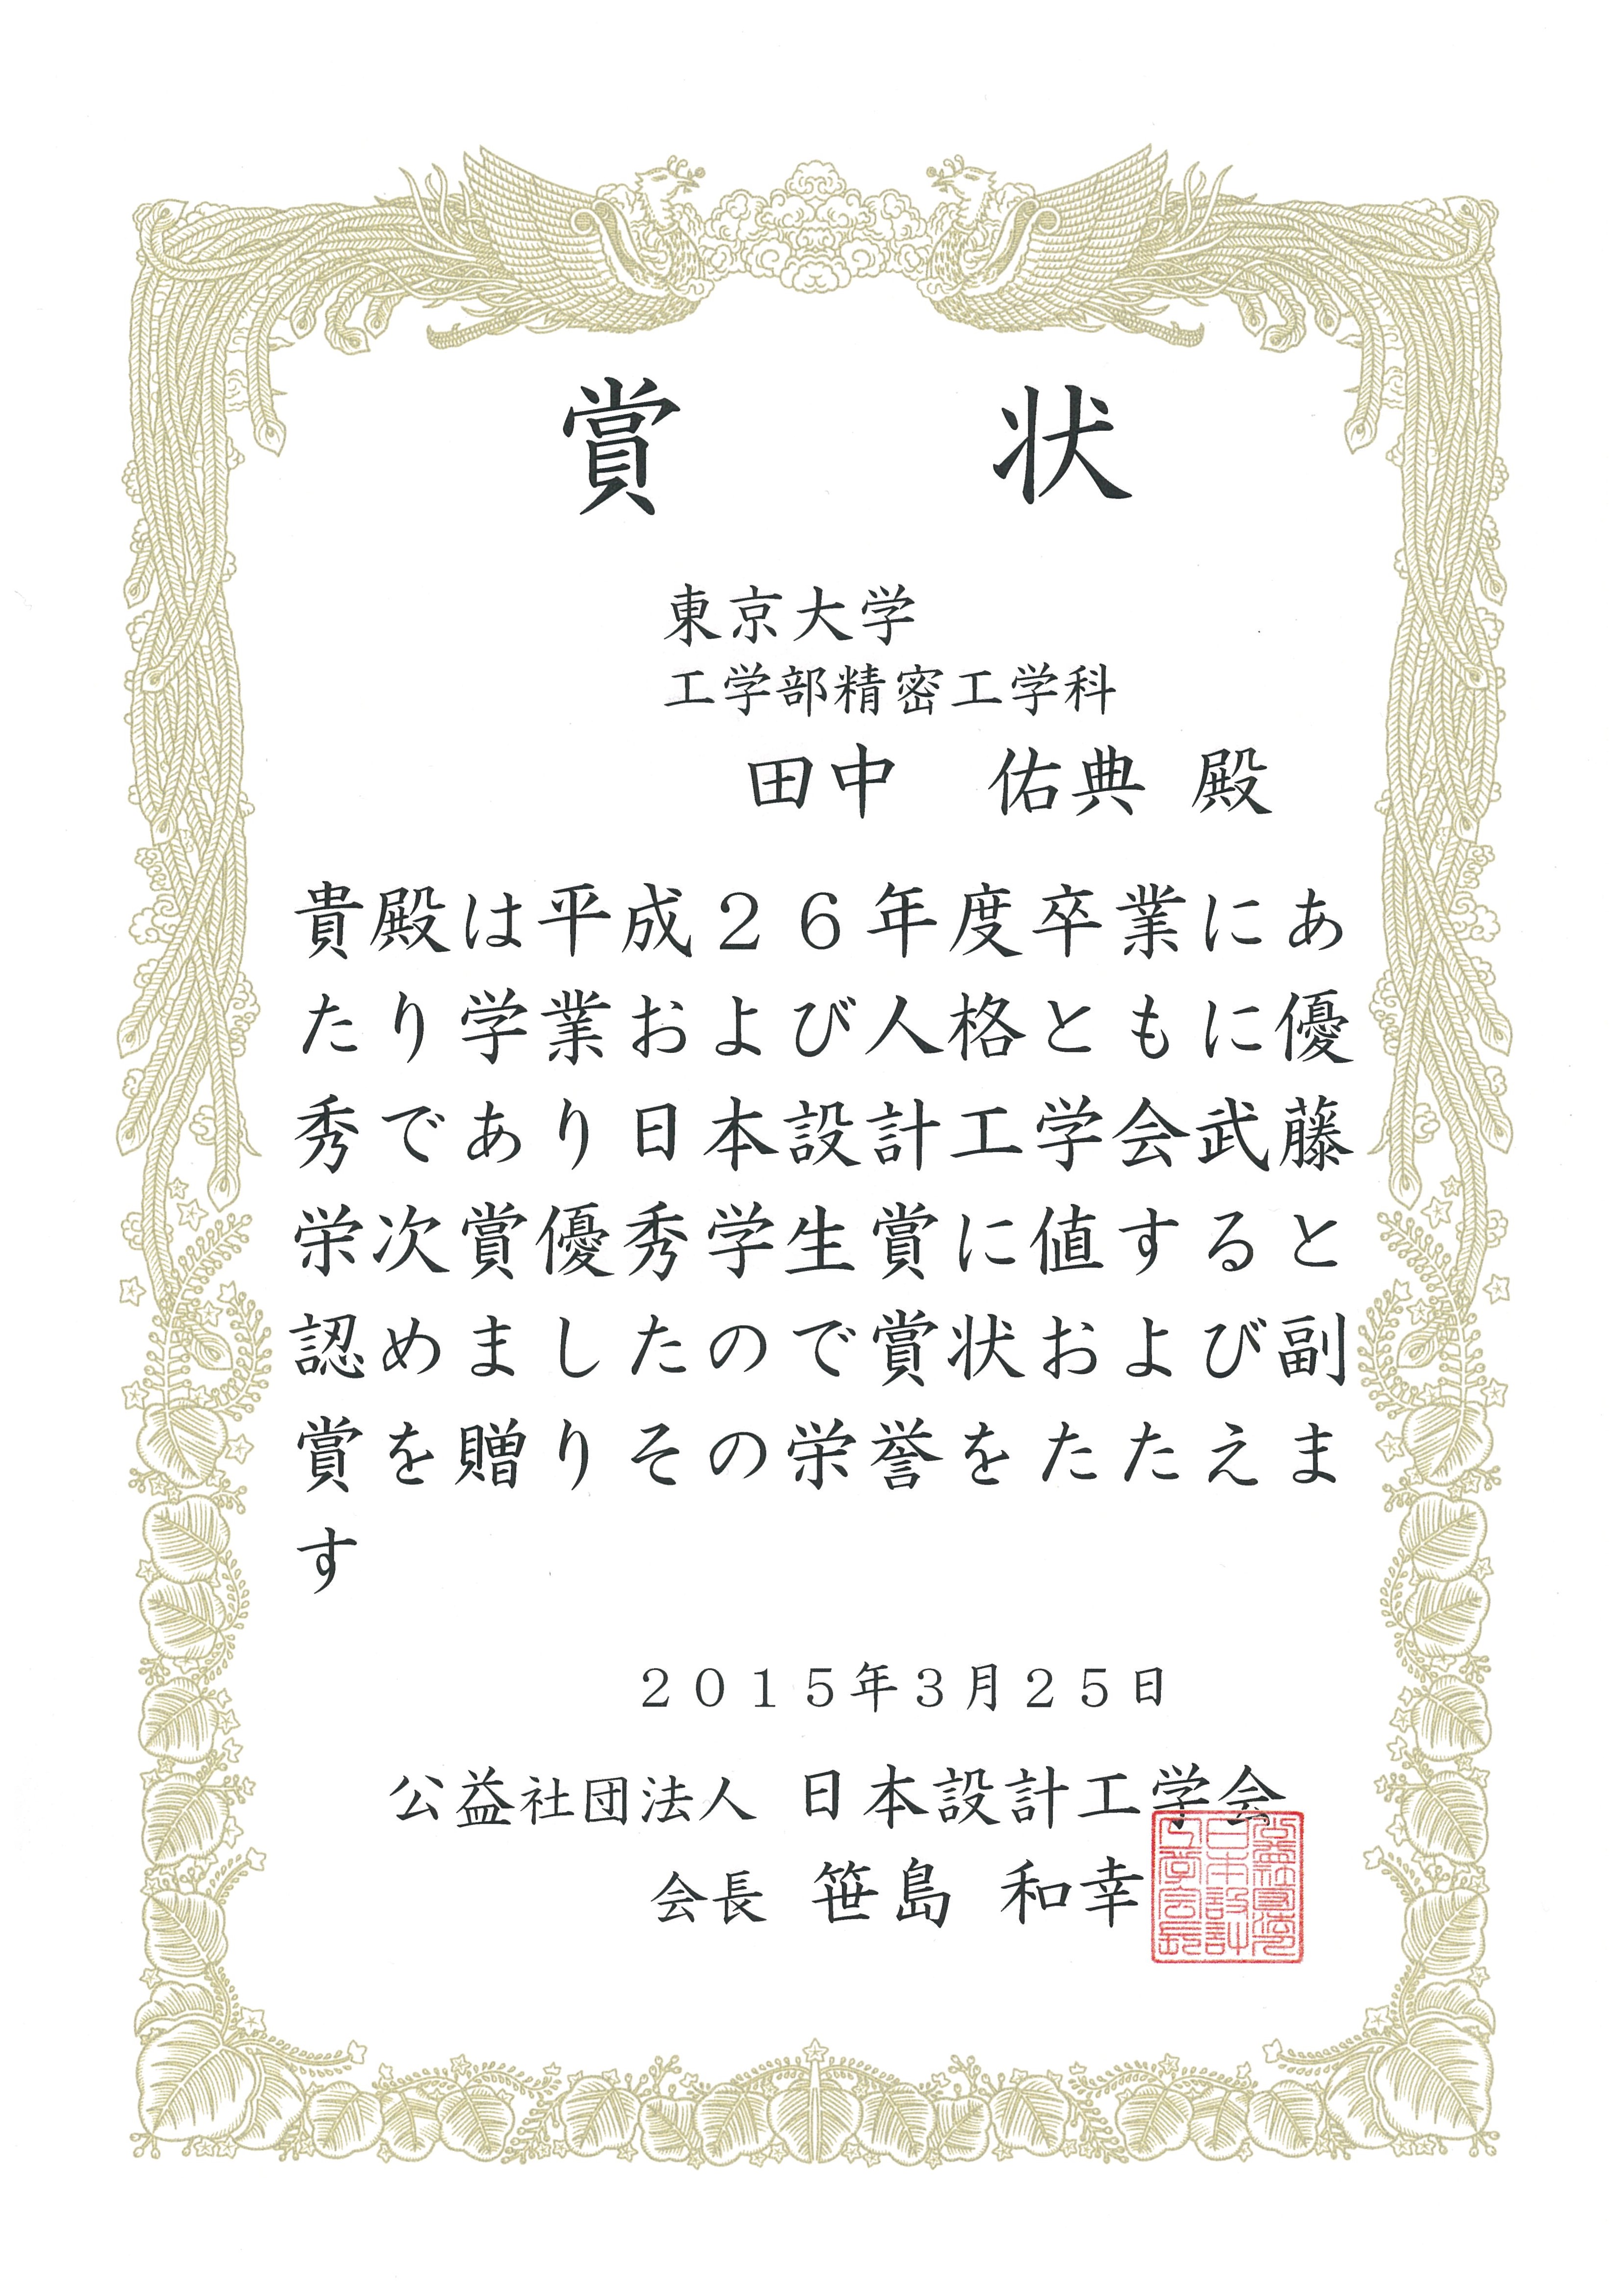 賞状
東京大学
工学部精密工学科
田中 佑典 殿
貴殿は平成26年度卒業にあ
たり学業および人格ともに優
秀であり日本設計工学会武藤
栄次賞優秀学生賞に値すると
認めましたので賞状および副
賞を贈りその栄誉をたたえま
す
2015年3月25日
公益社団法人 日本設計工学会
会長 笹島 和幸
公益社団法人
日本設計
工学会長